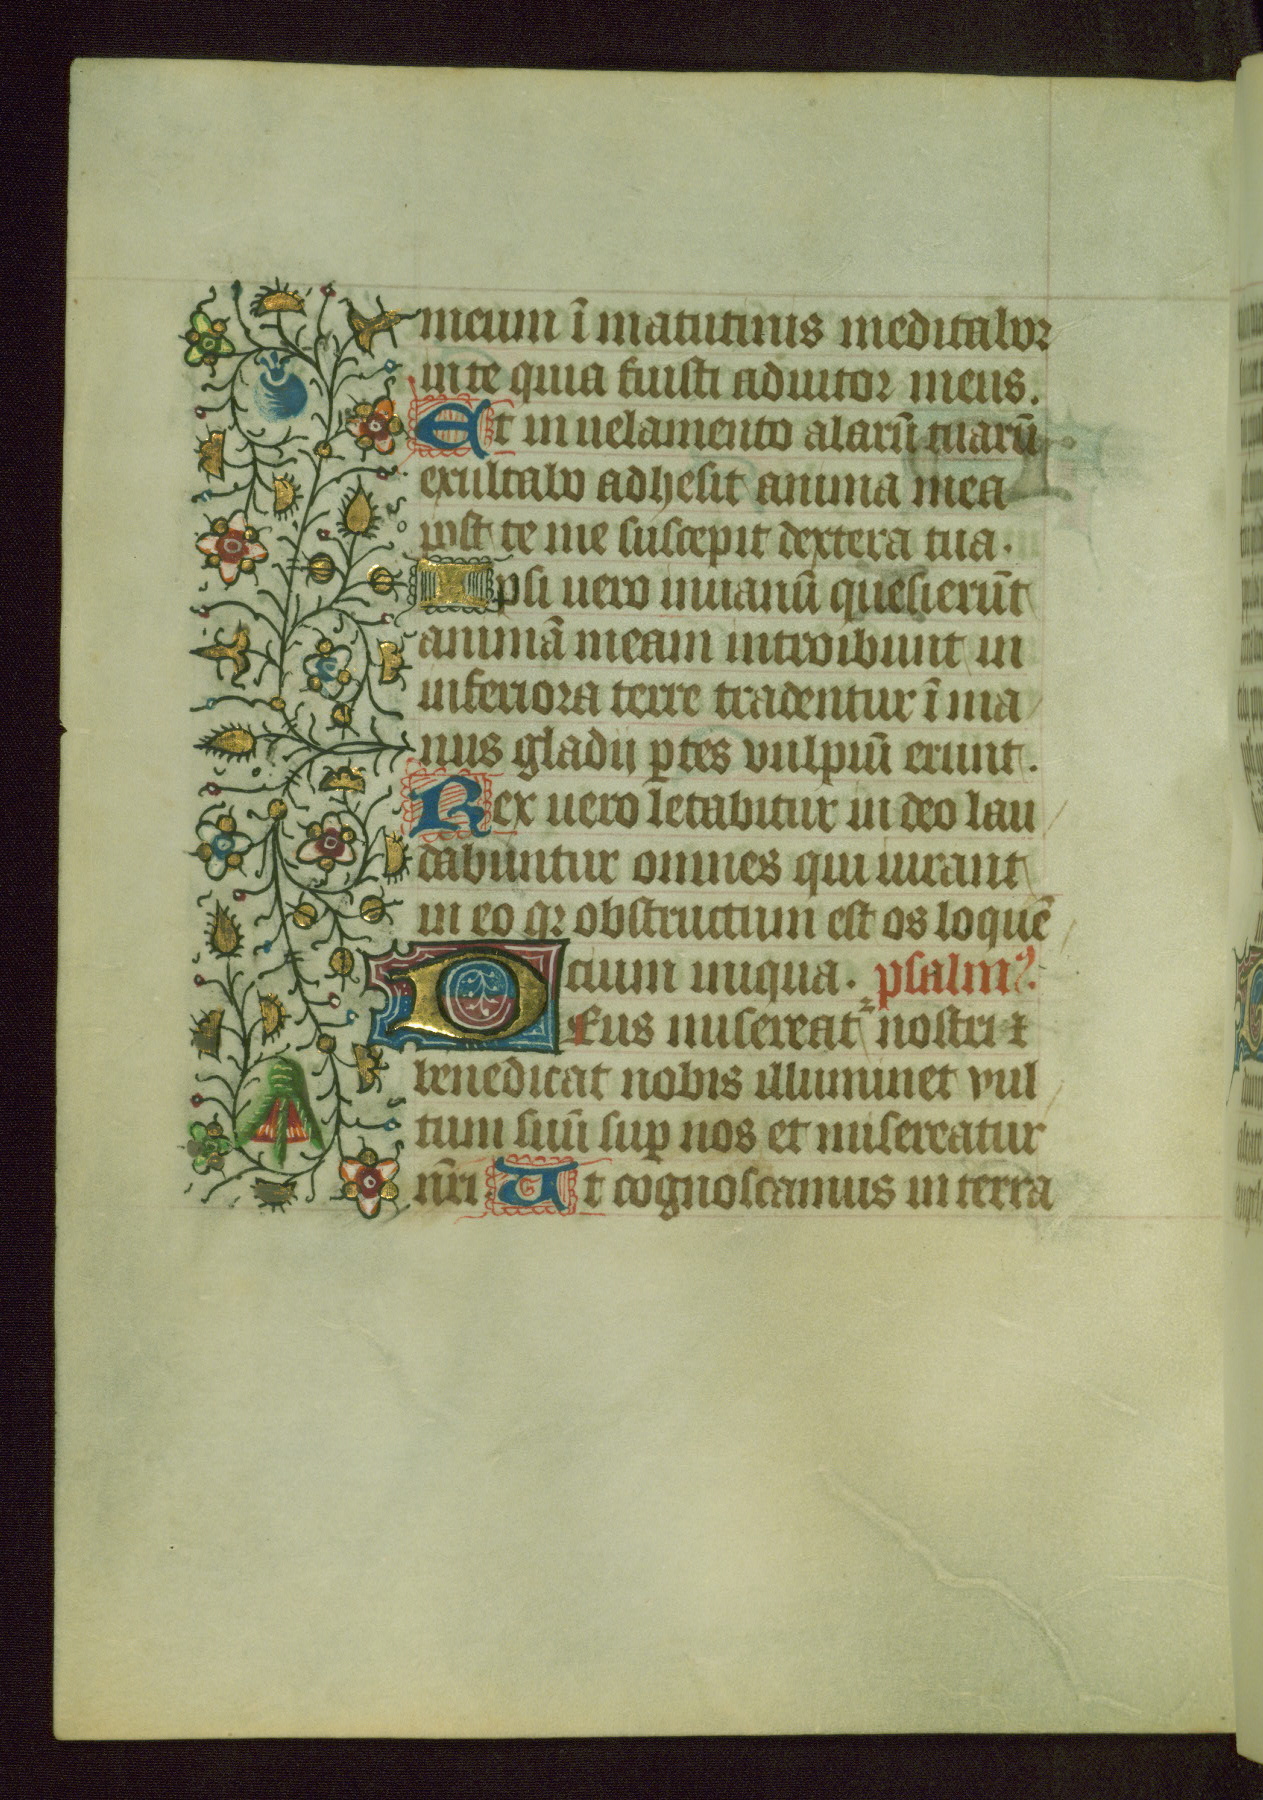 meum ī matutinis meditabor
in te quia fuisti adiutor meus.
Et in uelamento alarū tuarū
exultabo adhesit anima mea
post te me suscepit dextera tua.
Ipsi uero inuanū quesierūt
animā meam introibunt in
inferiora terre tradentur ī ma
nus gladii ꝑtes vulpiū erunt.
Rex uero letabitur in deo lau
dabuntur omnes qui iurant
in eo qꝛ obstructum est os loquē
tium iniqua. psalmꝰ.
Deus misereat᷑ nostri ⁊
benedicat nobis illuminet vul
tum suū suꝑ nos et misereatur
nr̄i. Ut cognoscamus in terra